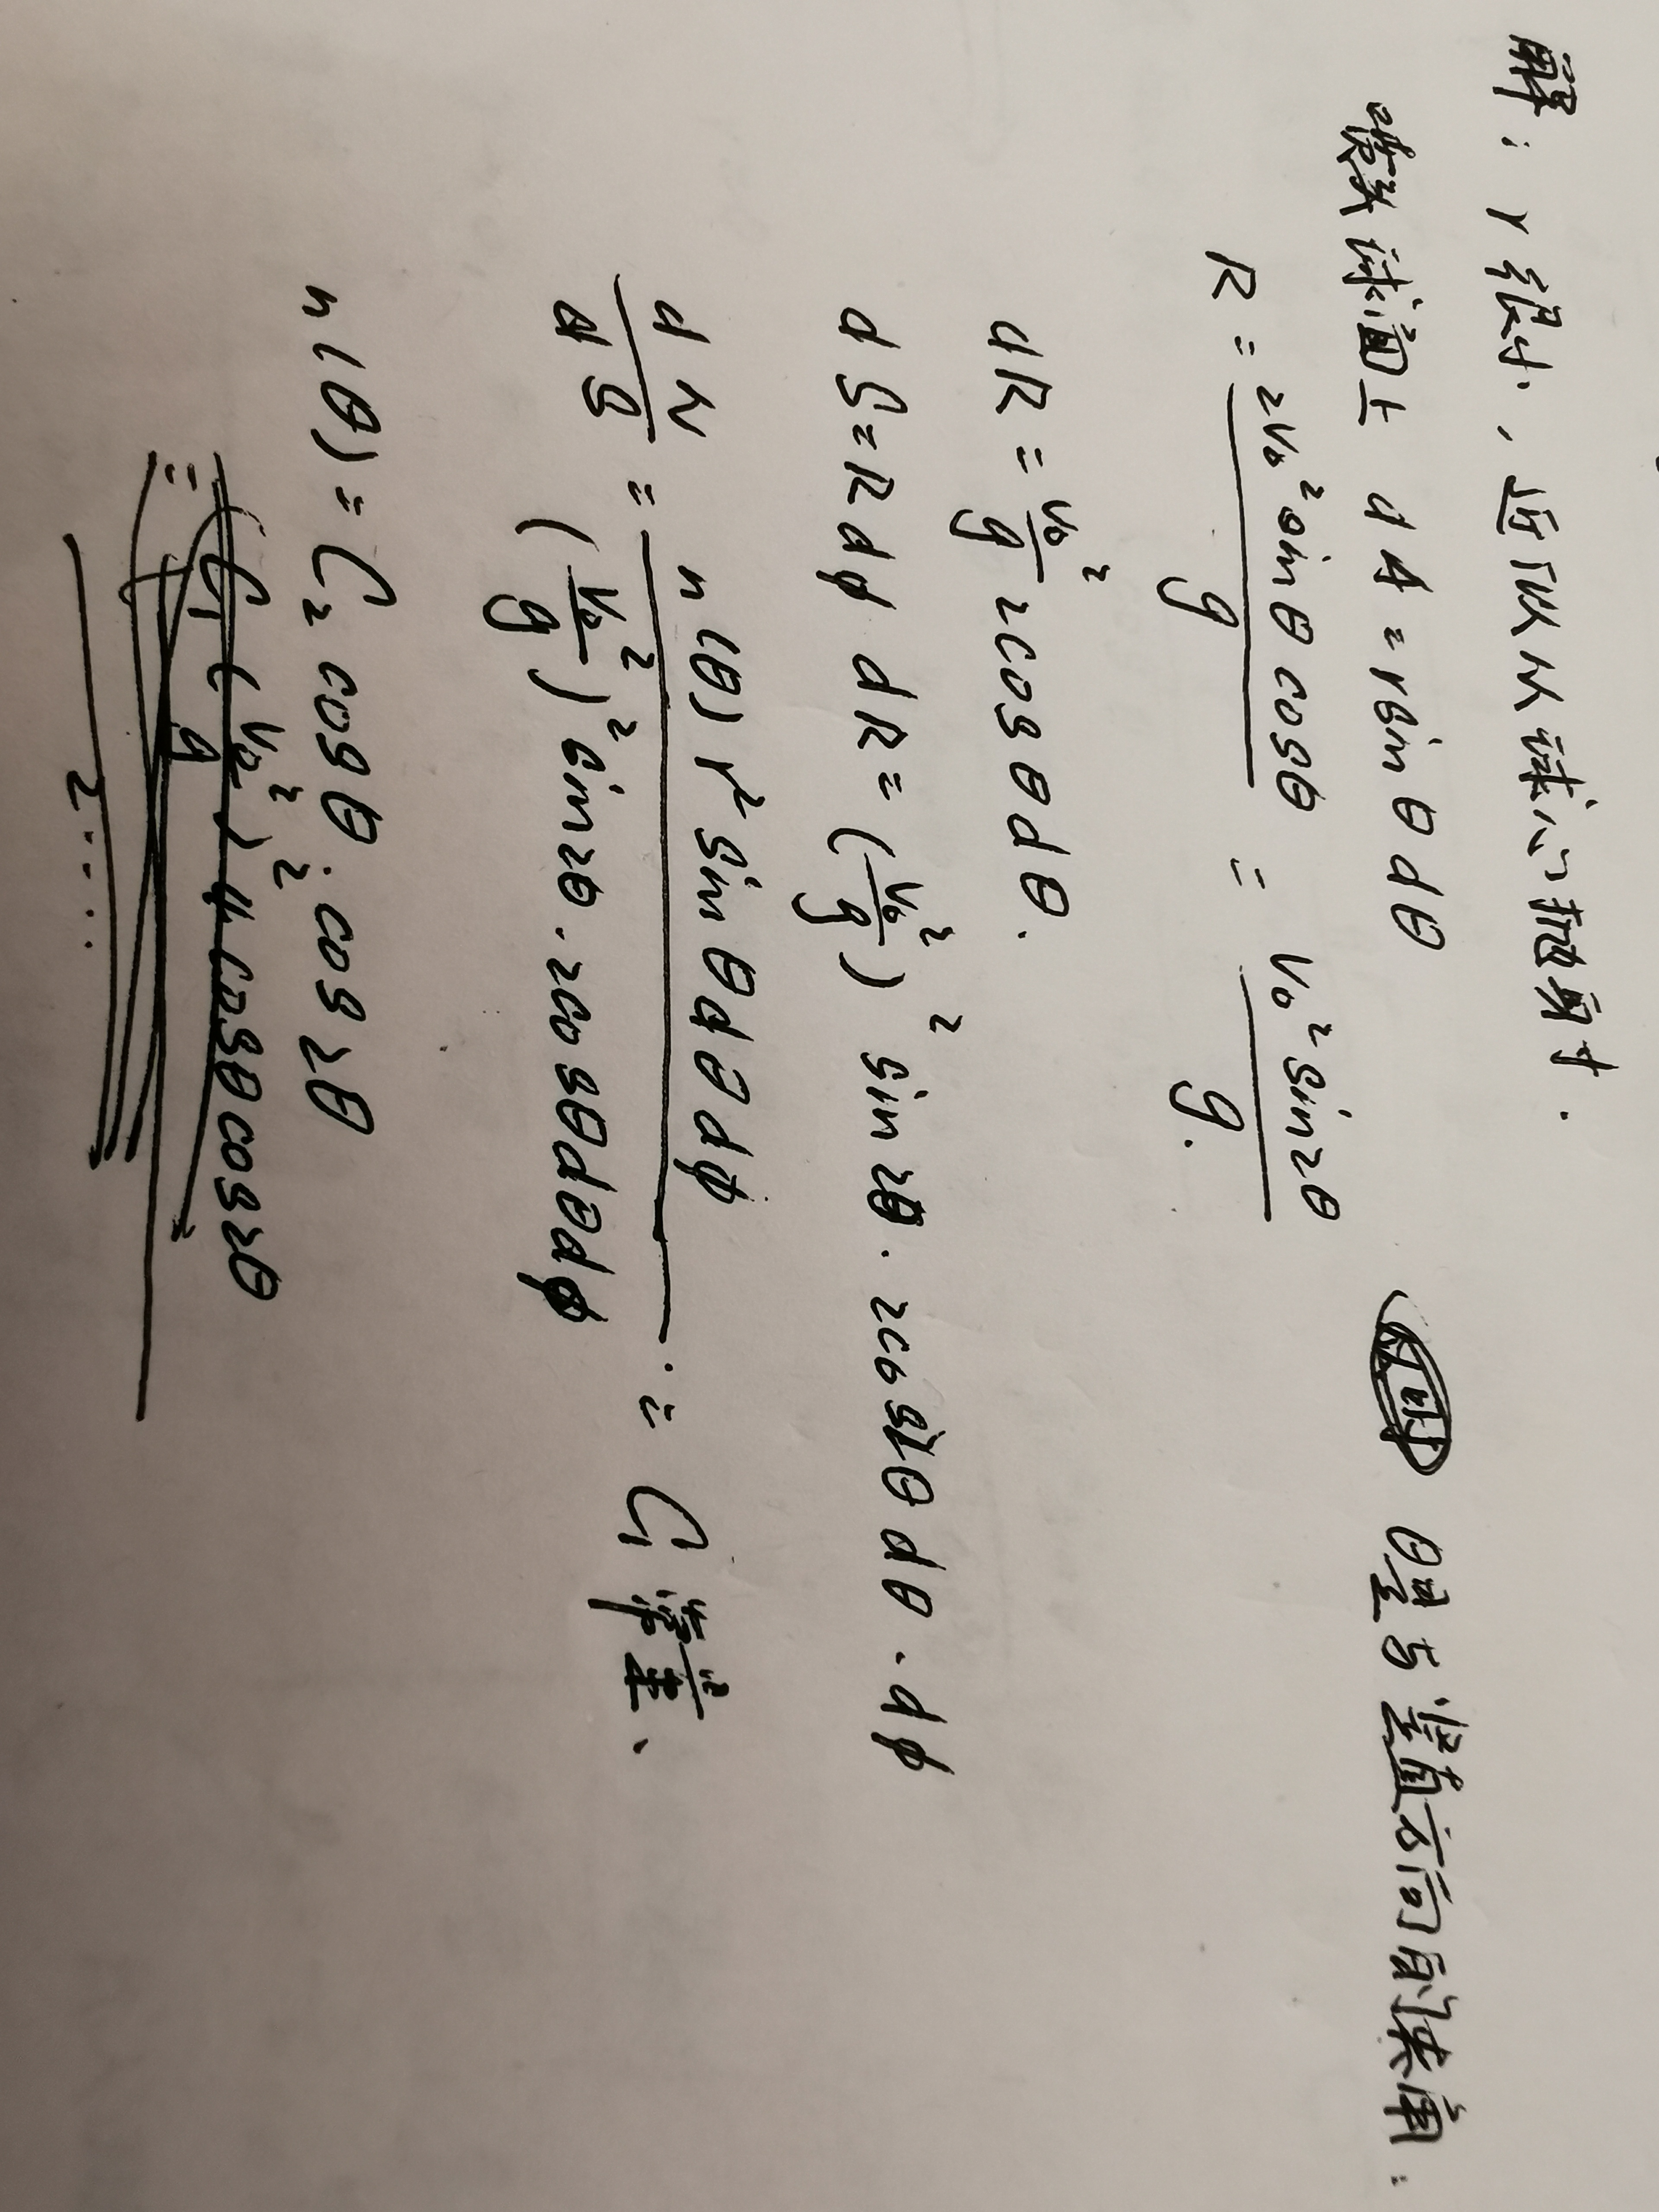 解：r很小，近似从球心抛射．
喷头球面上 dA = r sinθdθ θ是与竖直方向的夹角：
R = 2v₀²sinθcosθ / g = v₀²sin2θ / g.
dR = v₀²/g 2cosθdθ.
dS = R dφ dR = (v₀²/g)² sin2θ · 2cos2θdθ · dφ
dN/dS = n(θ) r² sinθdθdφ / (v₀²/g)² sin2θ · 2cosθdθdφ = C₁ 常量.
n(θ) = C₂ cosθ · cos2θ
= C₁ (v₀²/g)² 4 cosθcos2θ